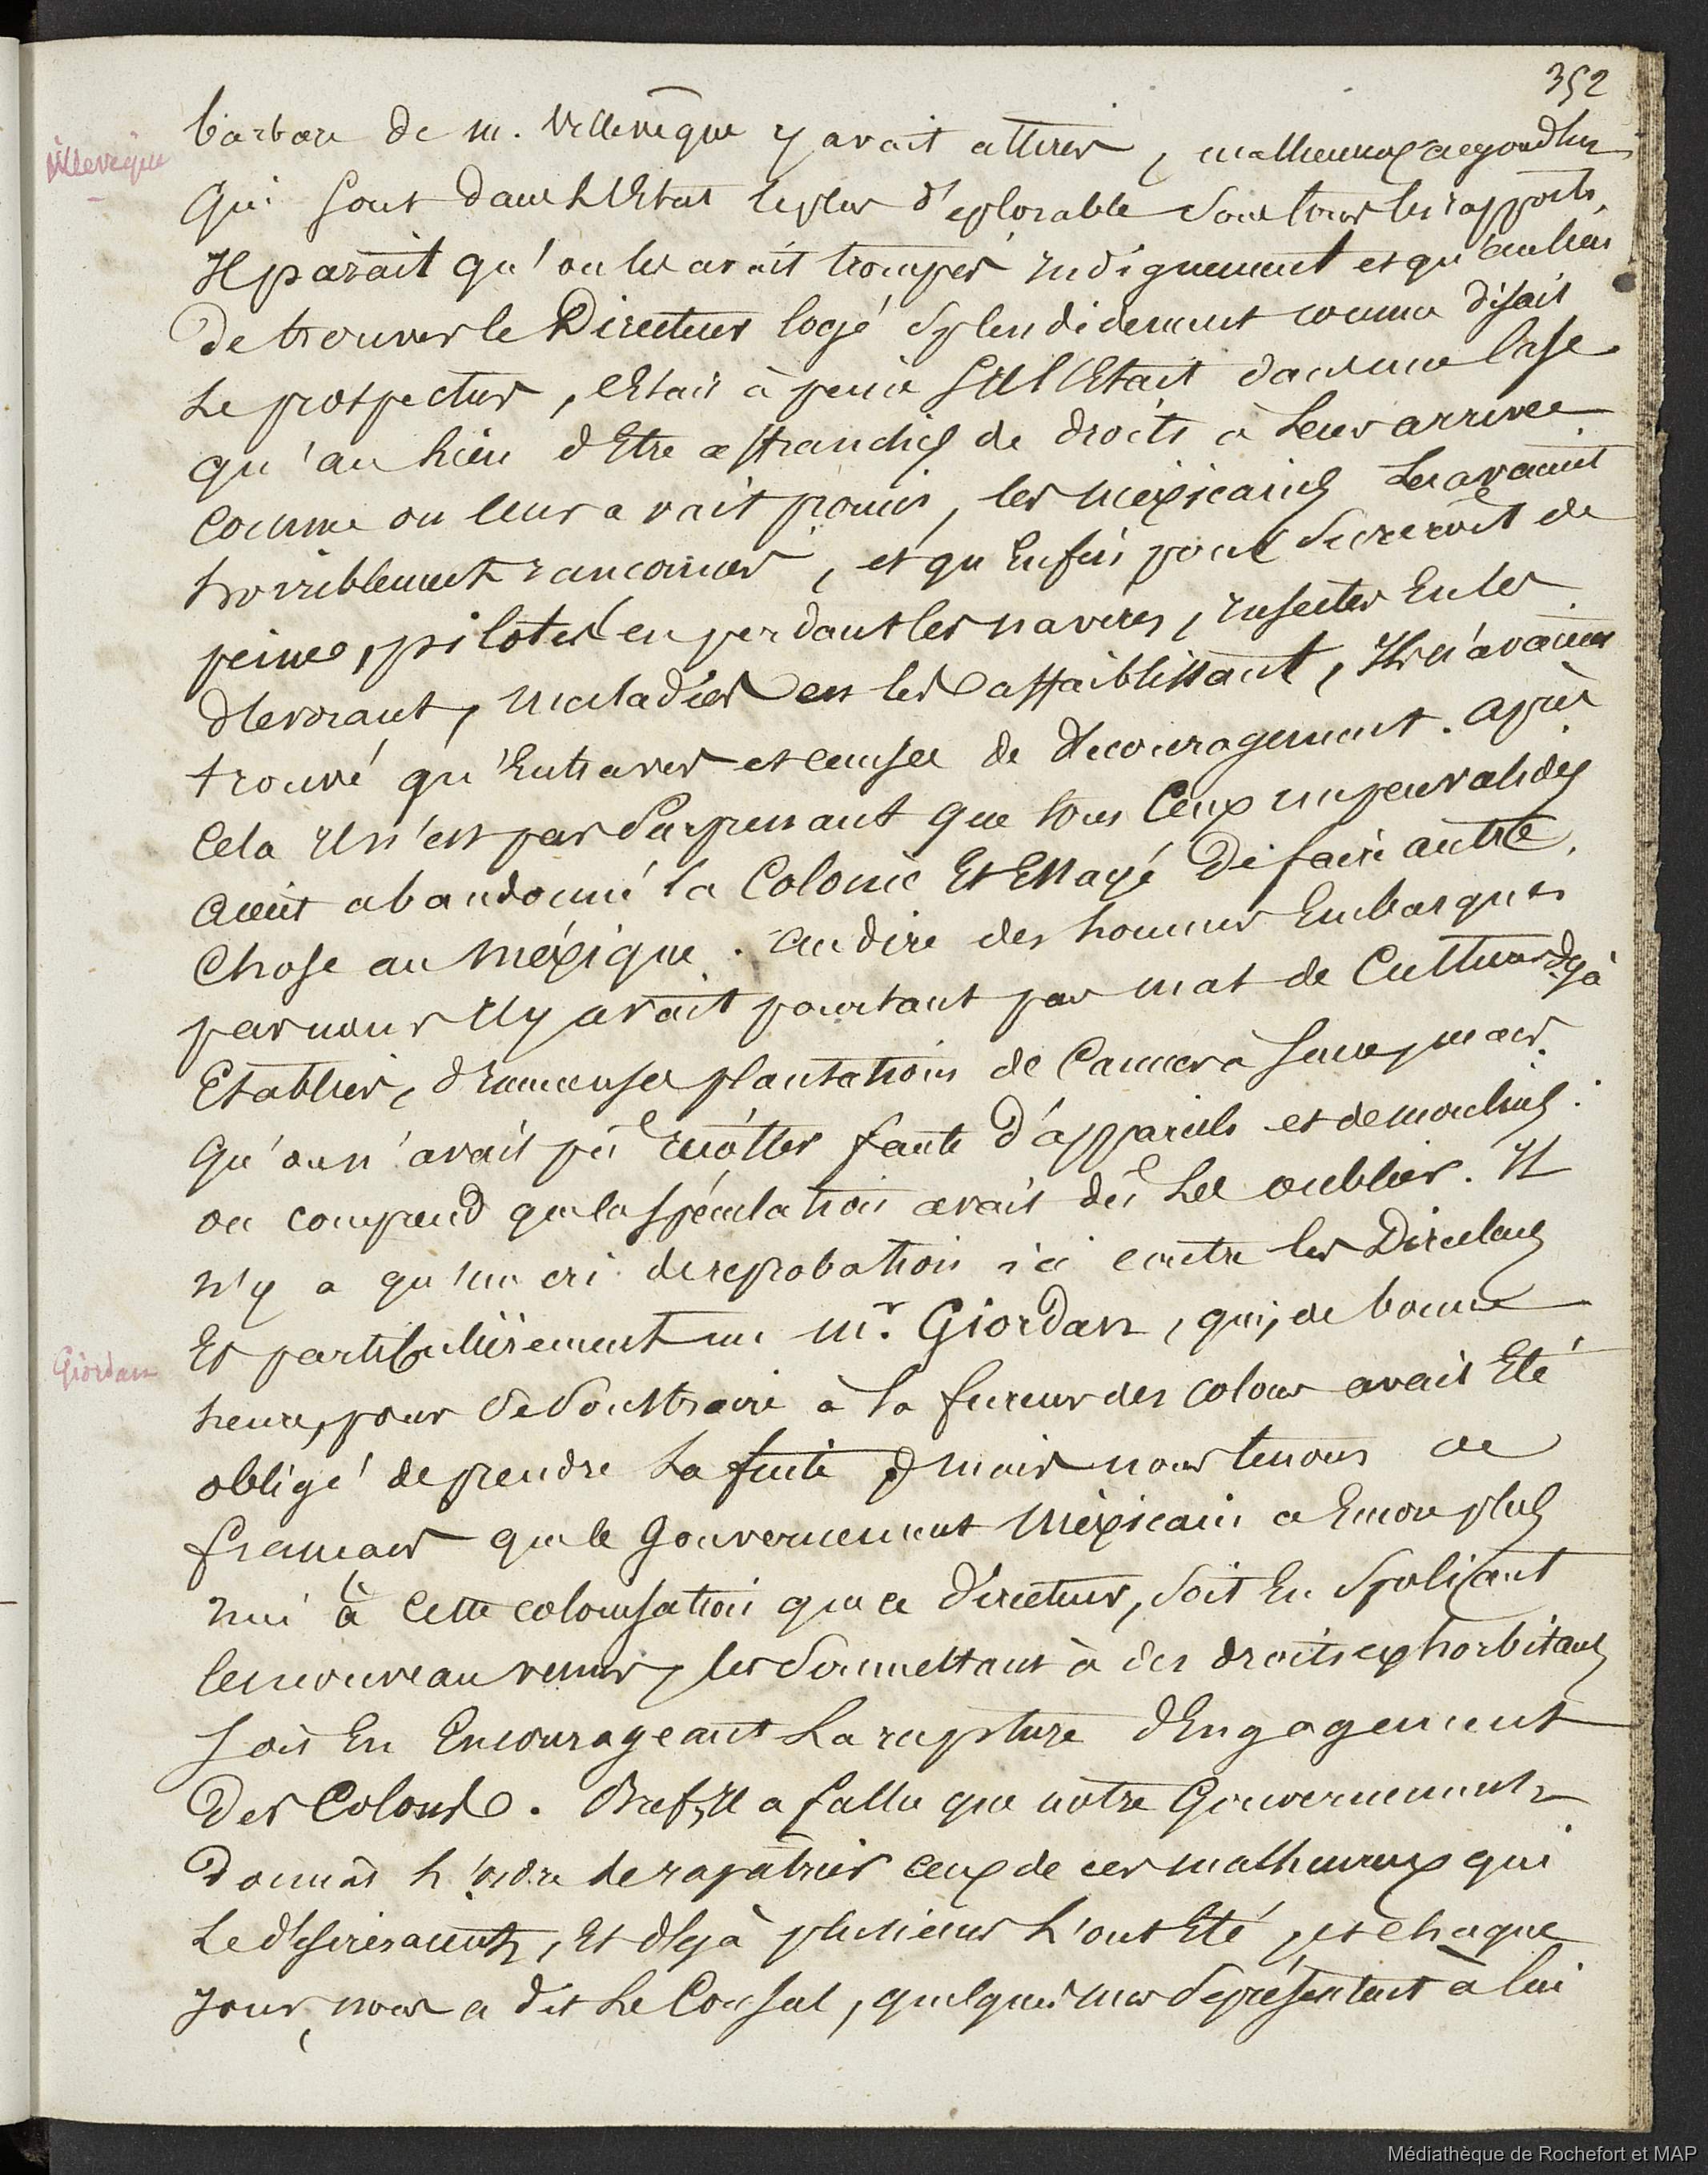 352
barbare de m. Villevêque y avait attirés, malheureux aujourdhui
Villevêque
qui sont dans l'Etat le plus d'eplorable sous tous les rapports,
Il parait qu'on les avait trompés indignement et qu'au lieu
de trouver le Directeur logé splendidement comme disait
Le prospectus, c'Etait à peine s'il Etait dans une case
qu'au lieu d'Etre affranchis de droits à Leur arrivée
comme on leur avait promis, les mexicains Les avaient
horriblement rançonnés, et qu'Enfin pour surcroit de
peines, pilotes en perdant les navires, insectes En les
devorant, maladies en les affaiblissant, Ils n'avaient
trouvé qu'Entraves et causes de decouragement. après
Cela Il n'est pas surprenant que tous Ceux un peu valides
aient abandonné la Colonie Et Essayé De faire autre
Chose au méxique. au dire des hommes Embarqués
par nous Il y avait pourtant pas mal de Cultures deja
Etablies, d'immenses plantations de Cannes à sucre, mais
qu'on n'avait pu récolter faute d'appareils et de moulins.
on comprend que la spéculation avait dû Les oublier. Il
n'y a qu'un cri de reprobation ici contre les Directeurs
Et particulièrement un Mr. Giordan, qui, de bonne
Giordan
heure, pour se soustraire à la fureur des colons avait Eté
obligé de prendre La fuite, mais nous tenons de
francais que le Gouvernement Méxicain a Encore plus
nui à cette colonisation que ce directeur, soit En spoliant
les nouveau venus, les soumettant à des droits exhorbitans
soit En Encourageant La rupture d'Engagement
Des Colons. Bref, Il a fallu que notre Gouvernement
donnât L'ordre de rapatrier ceux de ces malheureux qui
Le desireraient, Et deja plusieurs L'ont Eté, et chaque
Jour, nous a dit Le Consul, quelques uns se présentent à lui
Médiathèque de Rochefort et MAP